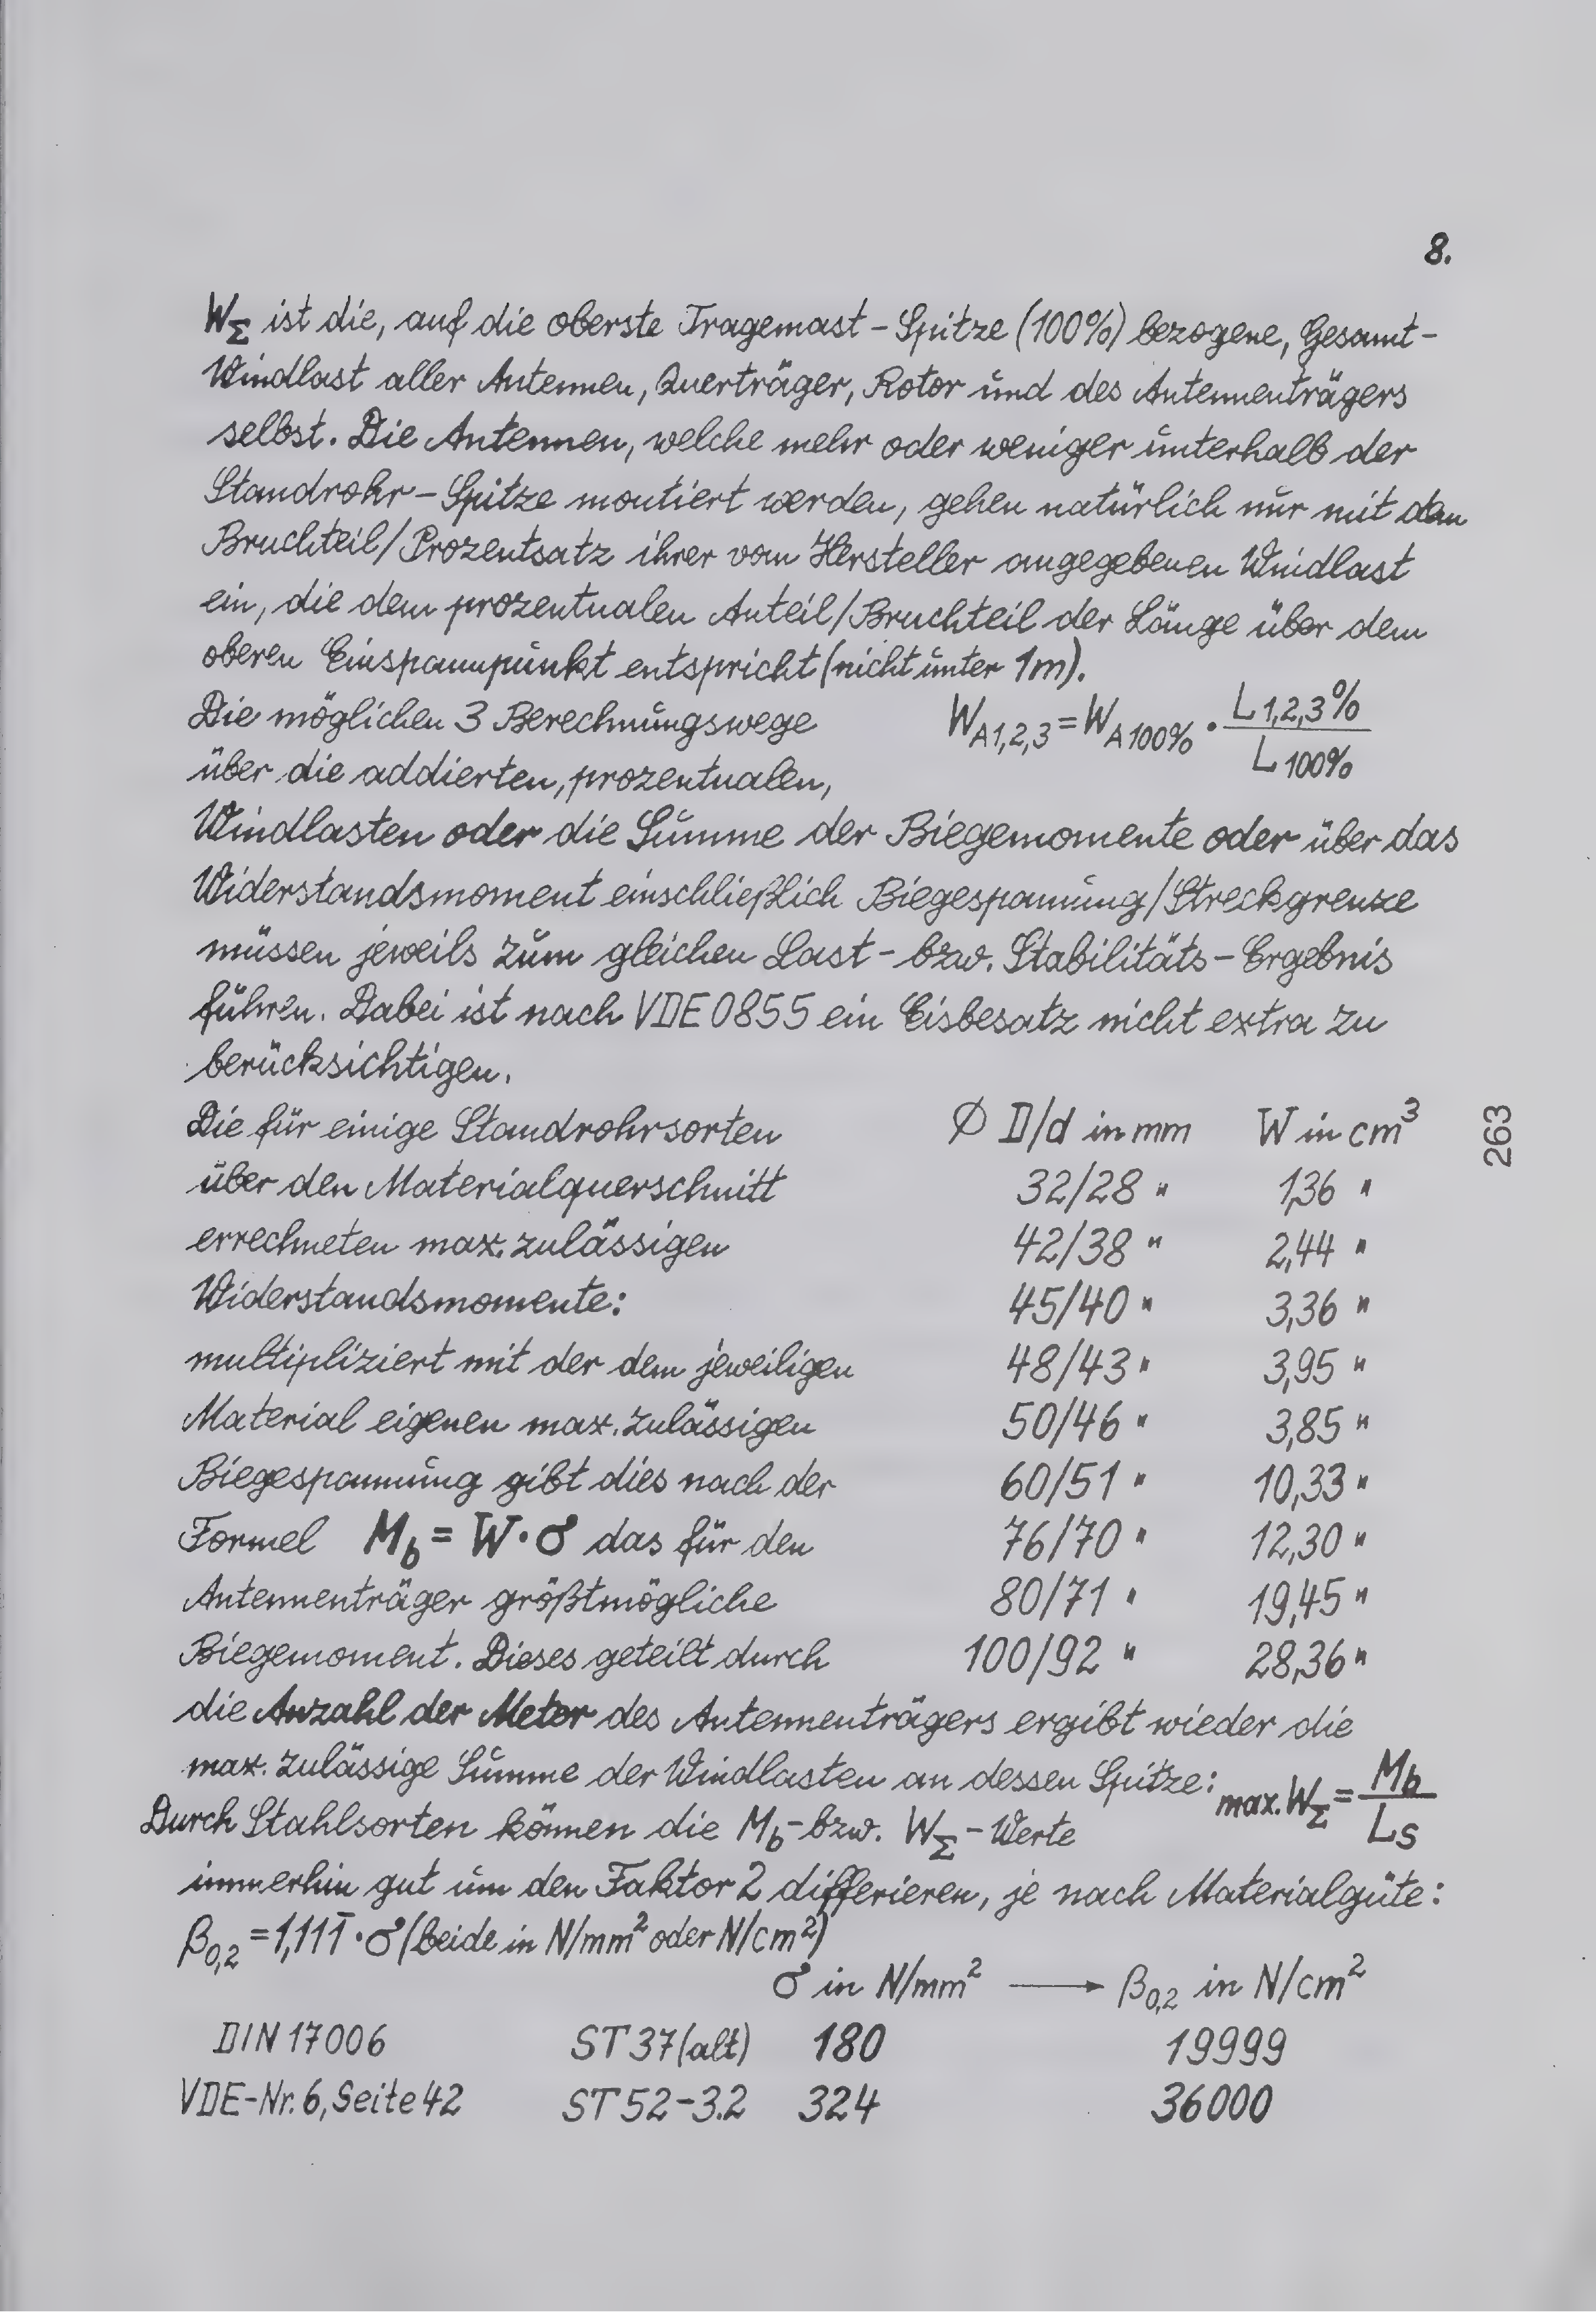 8.
W_Σ ist die, auf die oberste Tragemast-Spitze (100%) bezogene, Gesamt-
Windlast aller Antennen, Querträger, Rotor und des Antennenträgers
selbst. Die Antennen, welche mehr oder weniger unterhalb der
Standrohr-Spitze montiert werden, gehen natürlich nur mit dem
Bruchteil/Prozentsatz ihrer vom Hersteller angegebenen Windlast
ein, die dem prozentualen Anteil/Bruchteil der Länge über dem
oberen Einspannpunkt entspricht (nicht unter 1m).
Die möglichen 3 Berechnungswege W_A1,2,3 = W_A100% · L1,2,3% / L100%
über die addierten, prozentualen,
Windlasten oder die Summe der Biegemomente oder über das
Widerstandsmoment einschließlich Biegespannung/Streckgrenze
müssen jeweils zum gleichen Last- bzw. Stabilitäts-Ergebnis
führen. Dabei ist nach VDE 0855 ein Eisbesatz nicht extra zu
berücksichtigen.
Die für einige Standrohrsorten Ø D/d in mm W in cm³
über den Materialquerschnitt 32/28 " 1,36 "
errechneten max. zulässigen 42/38 " 2,44 "
Widerstandsmomente: 45/40 " 3,36 "
multipliziert mit der dem jeweiligen 48/43 " 3,95 "
Material eigenen max. zulässigen 50/46 " 3,85 "
Biegespannung gibt dies nach der 60/51 " 10,33 "
Formel M_b = W · σ das für den 76/70 " 12,30 "
Antennenträger größtmögliche 80/71 " 19,45 "
Biegemoment. Dieses geteilt durch 100/92 " 28,36 "
die Anzahl der Meter des Antennenträgers ergibt wieder die
max. zulässige Summe der Windlasten an dessen Spitze: max. W_Σ = M_b / L_S
Durch Stahlsorten können die M_b- bzw. W_Σ-Werte
immerhin gut um den Faktor 2 differieren, je nach Materialgüte:
β_0,2 = 1,111̅ · σ (beide in N/mm² oder N/cm²)
σ in N/mm² → β_0,2 in N/cm²
DIN 17006 ST 37 (alt) 180 19999
VDE-Nr. 6, Seite 42 ST 52-3.2 324 36000
263